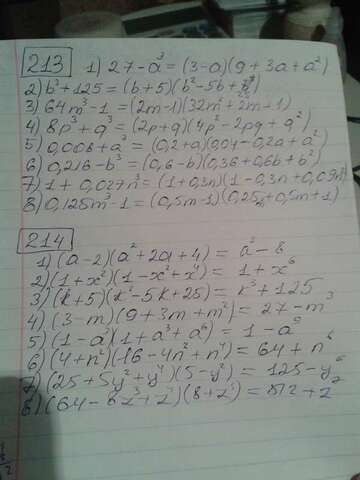 213 1) 27-a³ = (3-a)(9+3a+a²)
2) b³+125 = (b+5)(b²-5b+25)
3) 64m³-1 = (2m-1)(32m²+2m+1)
4) 8p³+q³ = (2p+q)(4p²-2pq+q²)
5) 0,008+a³ = (0,2+a)(0,04-0,2a+a²)
6) 0,216-b³ = (0,6-b)(0,36+0,6b+b²)
7) 1+0,027n³ = (1+0,3n)(1-0,3n+0,09n²)
8) 0,125m³-1 = (0,5m-1)(0,25+0,5m+1)
214
1) (a-2)(a²+2a+4) = a³-8
2) (1+x²)(1-x²+x⁴) = 1+x⁶
3) (k+5)(k²-5k+25) = k³+125
4) (3-m)(9+3m+m²) = 27-m³
5) (1-a³)(1+a³+a⁶) = 1-a⁹
6) (4+n²)(16-4n²+n⁴) = 64+n⁶
7) (25+5y²+y⁴)(5-y²) = 125-y⁶
8) (64-8z³+z⁶)(8+z³) = 512+z⁹